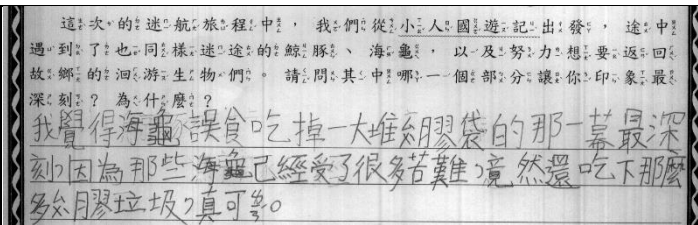 這次的迷航旅程中，我們從小人國遊記出發，途中
遇到了也同樣迷途的鯨豚、海龜，以及努力想要返回
故鄉的洄游生物們。請問其中哪一個部分讓你印象最
深刻？為什麼？
我覺得海龜誤食吃掉一大堆塑膠袋的那一幕最深
刻，因為那些海龜已經受了很多苦難，竟然還吃下那麼
多膠垃圾，真可。